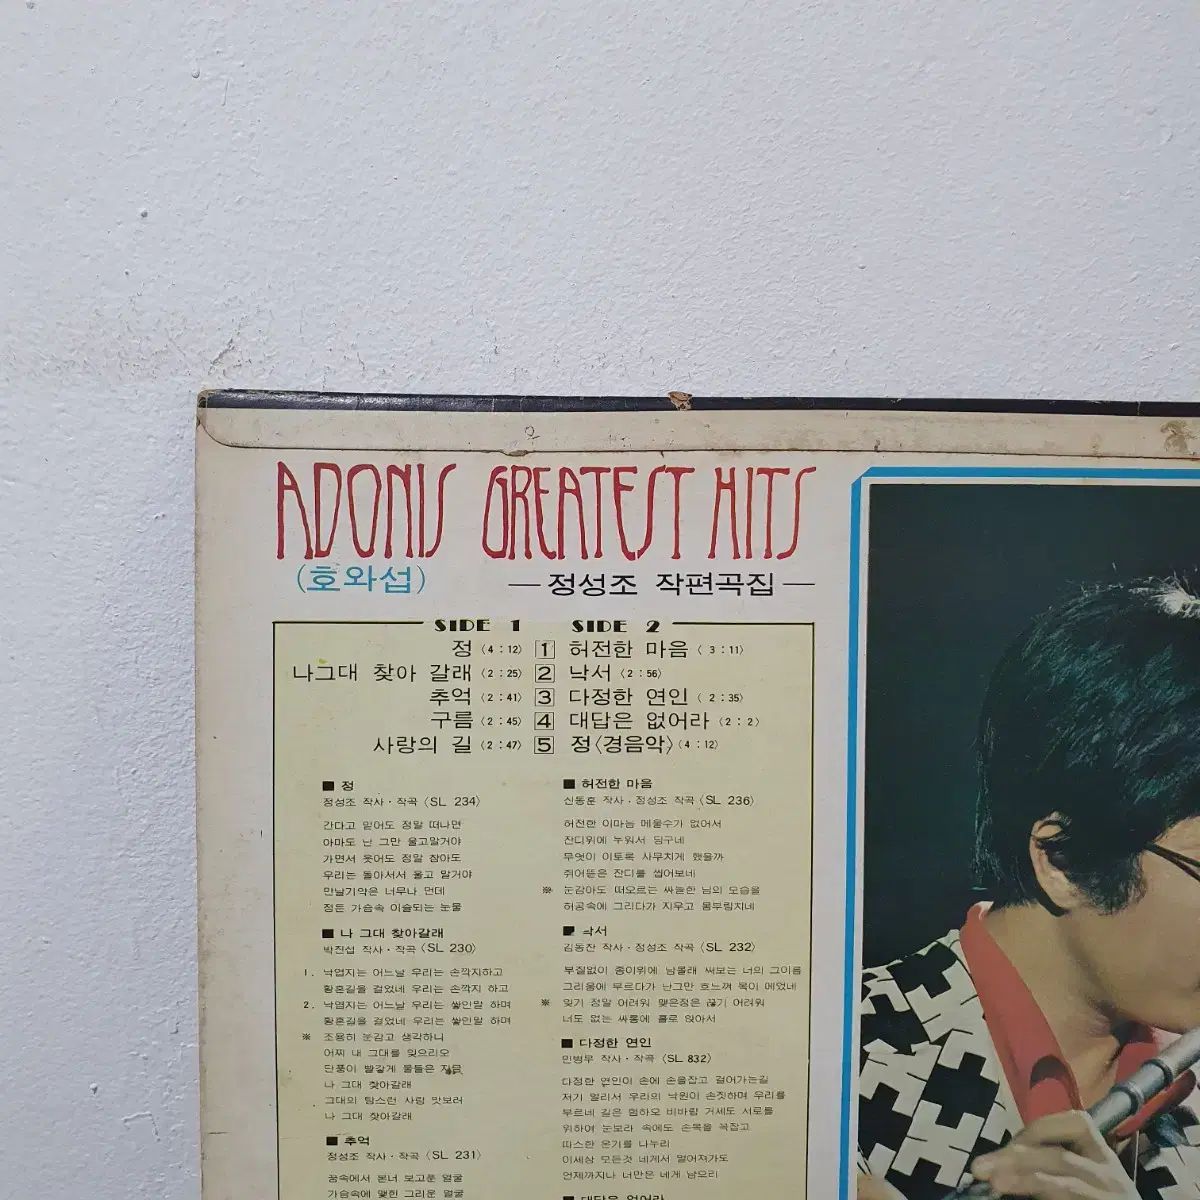 ADONIS GREATEST HITS
(호와섭) —정성조 작편곡집—
SIDE 1 SIDE 2
정 (4:12) 1 허전한 마음 (3:11)
나그대 찾아 갈래 (2:25) 2 낙서 (2:56)
추억 (2:41) 3 다정한 연인 (2:35)
구름 (2:45) 4 대답은 없어라 (2:2)
사랑의 길 (2:47) 5 정〈경음악〉(4:12)
■ 정
정성조 작사·작곡 (SL 234)
간다고 믿어도 정말 떠나면
아마도 난 그만 울고말거야
가면서 웃어도 정말 참아도
우리는 돌아서서 울고 말거야
만날기약은 너무나 먼데
정든 가슴속 이슬되는 눈물
■ 나 그대 찾아갈래
박진섭 작사·작곡 (SL 230)
1. 낙엽지는 어느날 우리는 손깍지하고
황혼길을 걸었네 우리는 손깍지 하고
2. 낙엽지는 어느날 우리는 쌓인말 하며
황혼길을 걸었네 우리는 쌓인말 하며
※ 조용히 눈감고 생각하니
어찌 내 그대를 잊으리오
단풍이 빨갛게 물들은 지금
나 그대 찾아갈래
그대의 탐스런 사람 맛보러
나 그대 찾아갈래
■ 추억
정성조 작사·작곡 (SL 231)
꿈속에서 본너 보고운 얼굴
가슴속에 맺힌 그리운 얼굴
■ 허전한 마음
신동훈 작사·정성조 작곡 (SL 236)
허전한 이마음 메울수가 없어서
잔디위에 누워서 딩구네
무엇이 이토록 사무치게 했을까
쥐어뜯은 잔디를 씹어보네
※ 눈감아도 떠오르는 싸늘한 님의 모습을
허공속에 그리다가 지우고 몸부림치네
■ 낙서
김동찬 작사·정성조 작곡 (SL 232)
부질없이 종이위에 남몰래 써보는 너의 그이름
그리움에 부르다가 난그만 흐느껴 목이 메었네
※ 잊기 정말 어려워 맺은정은 끊기 어려워
너도 없는 싸롱에 홀로 앉아서
■ 다정한 연인
민병무 작사·작곡 (SL 832)
다정한 연인이 손에 손을잡고 걸어가는길
저기 멀리서 우리의 낙원이 손짓하며 우리를
부르네 길은 험하오 비바람 거세도 서로를
위하여 눈보라 속에도 손목을 꼭잡고
따스한 온기를 나누리
이세상 모든것 네게서 멀어져가도
언제까지나 너만은 네게 남으리
■ 대답은 없어라